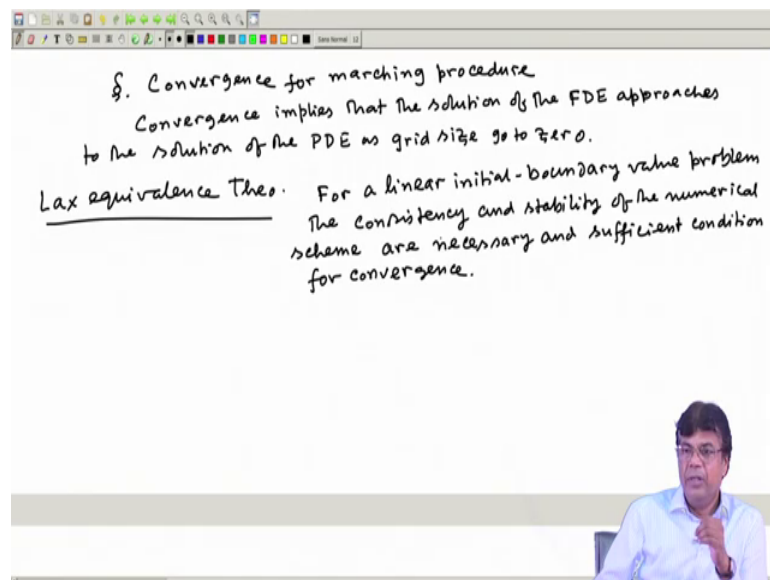 §. Convergence for marching procedure
Convergence implies that the solution of the FDE approaches
to the solution of the PDE as grid size go to zero.
Lax equivalence Theo. For a linear initial-boundary value problem
the consistency and stability of the numerical
scheme are necessary and sufficient condition
for convergence.
Sans Normal 12